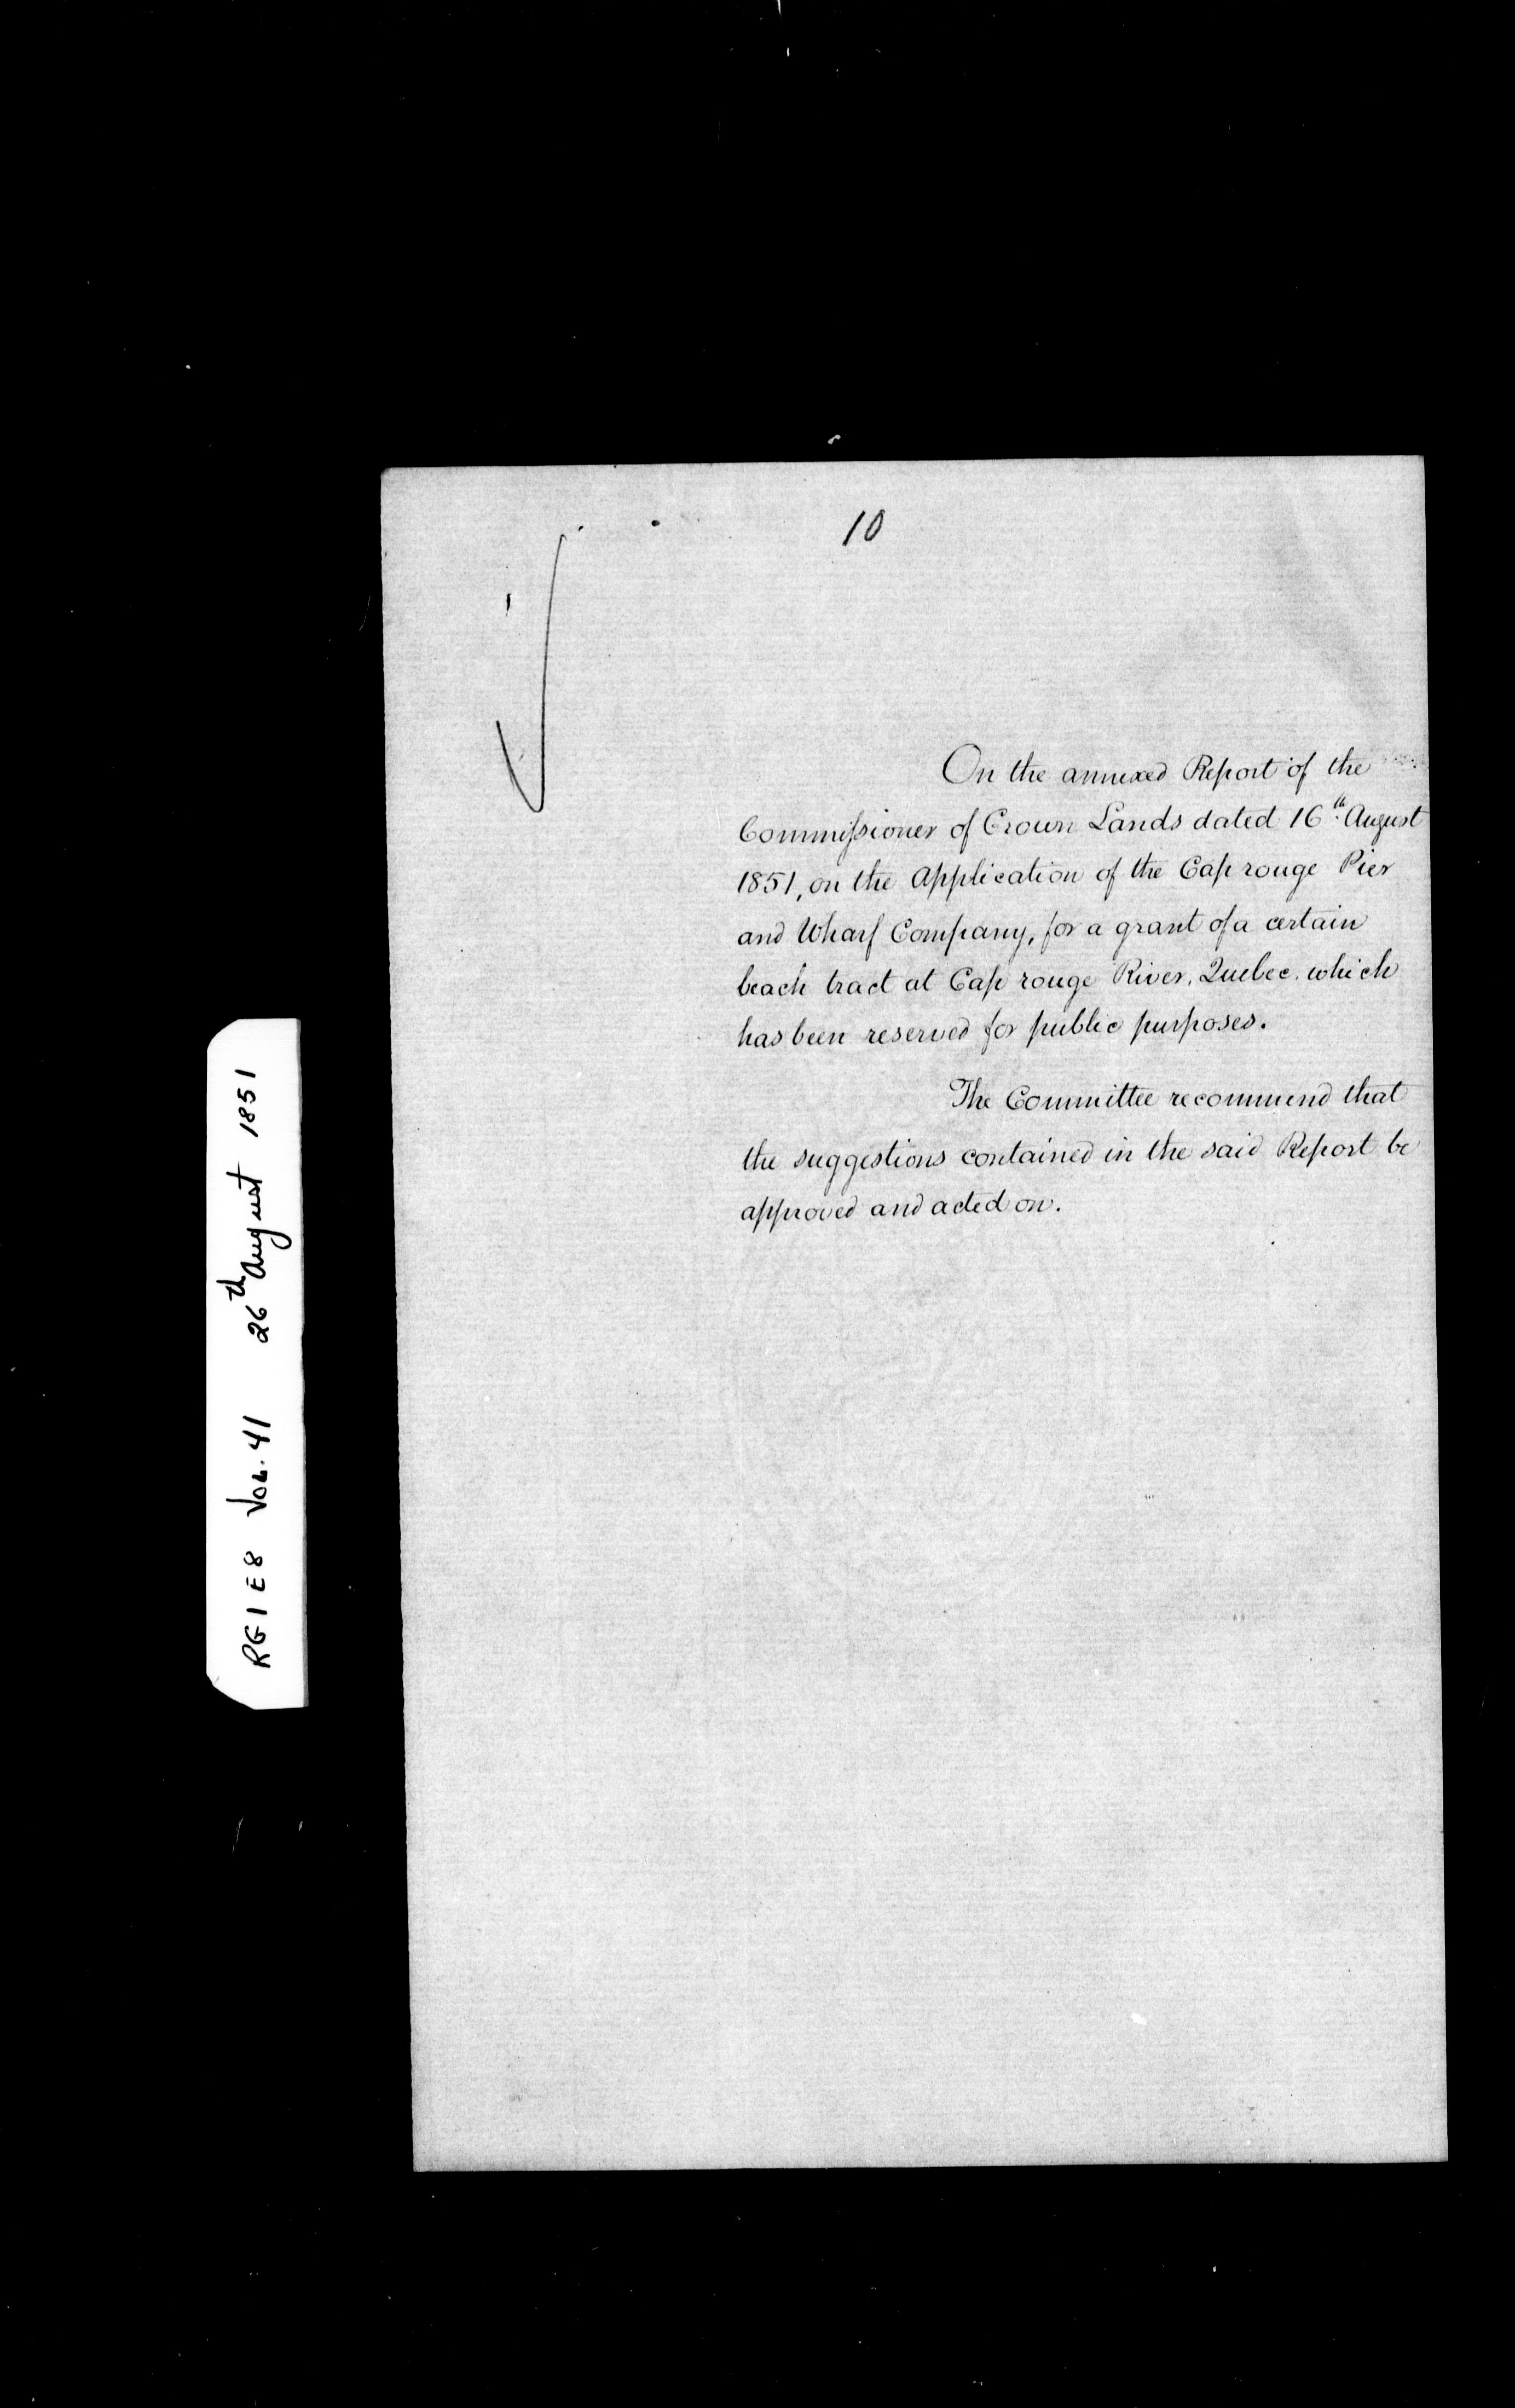 10
On the annexed Report of the
Commissioner of Crown Lands dated 16th August
1851, on the Application of the Cap rouge Pier
and Wharf Company, for a grant of a certain
beach tract at Cap rouge River, Quebec. which
has been reserved for public purposes.
The Committee recommend that
the suggestions contained in the said Report be
approved and acted on.
RG1 E8 Vol. 41 26th August 1851